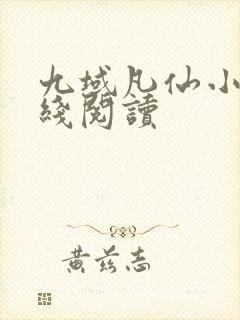 九域凡仙小
綫閱讀
黃茲志